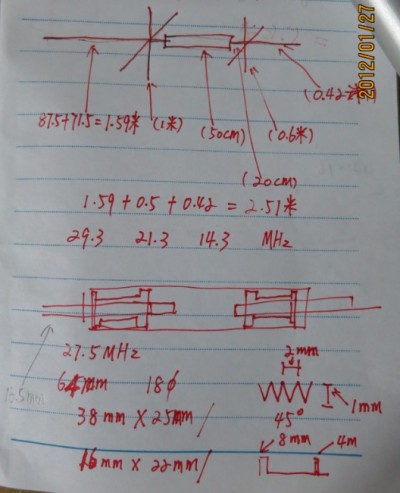 2012/01/27
87.5+71.5=1.59米 (1米) (50cm) (0.6米) (0.42米)
(20cm)
1.59 + 0.5 + 0.42 = 2.51米
29.3 21.3 14.3 MHz
27.5MHz
2mm
18ϕ
1mm
38mm X 25mm/
45°
8mm 4m
16mm x 22mm/